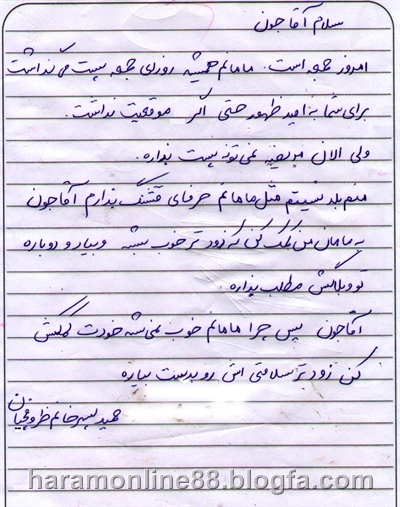 سلام آقا جون
امروز جمعه است. مامانم همیشه روزای جمعه پست می‌گذاشت
برای شما به امید ظهور حتی اگر موقعیت نداشت.
ولی الان مریضه نمی‌تونه پست بذاره.
منم بلد نیستم مثل مامانم حرفای قشنگ بذارم آقا جون
به مامان من کمک کنی که زود تر خوب بشه و بیاد و دوباره
تو وبلاگش مطلب بذاره.
آقا جون پس چرا مامانم خوب نمی‌شه خودت کمکش
کن زود تر سلامتی اش رو بدست بیاره
حمید پسر خانم
haramonline88.blogfa.com